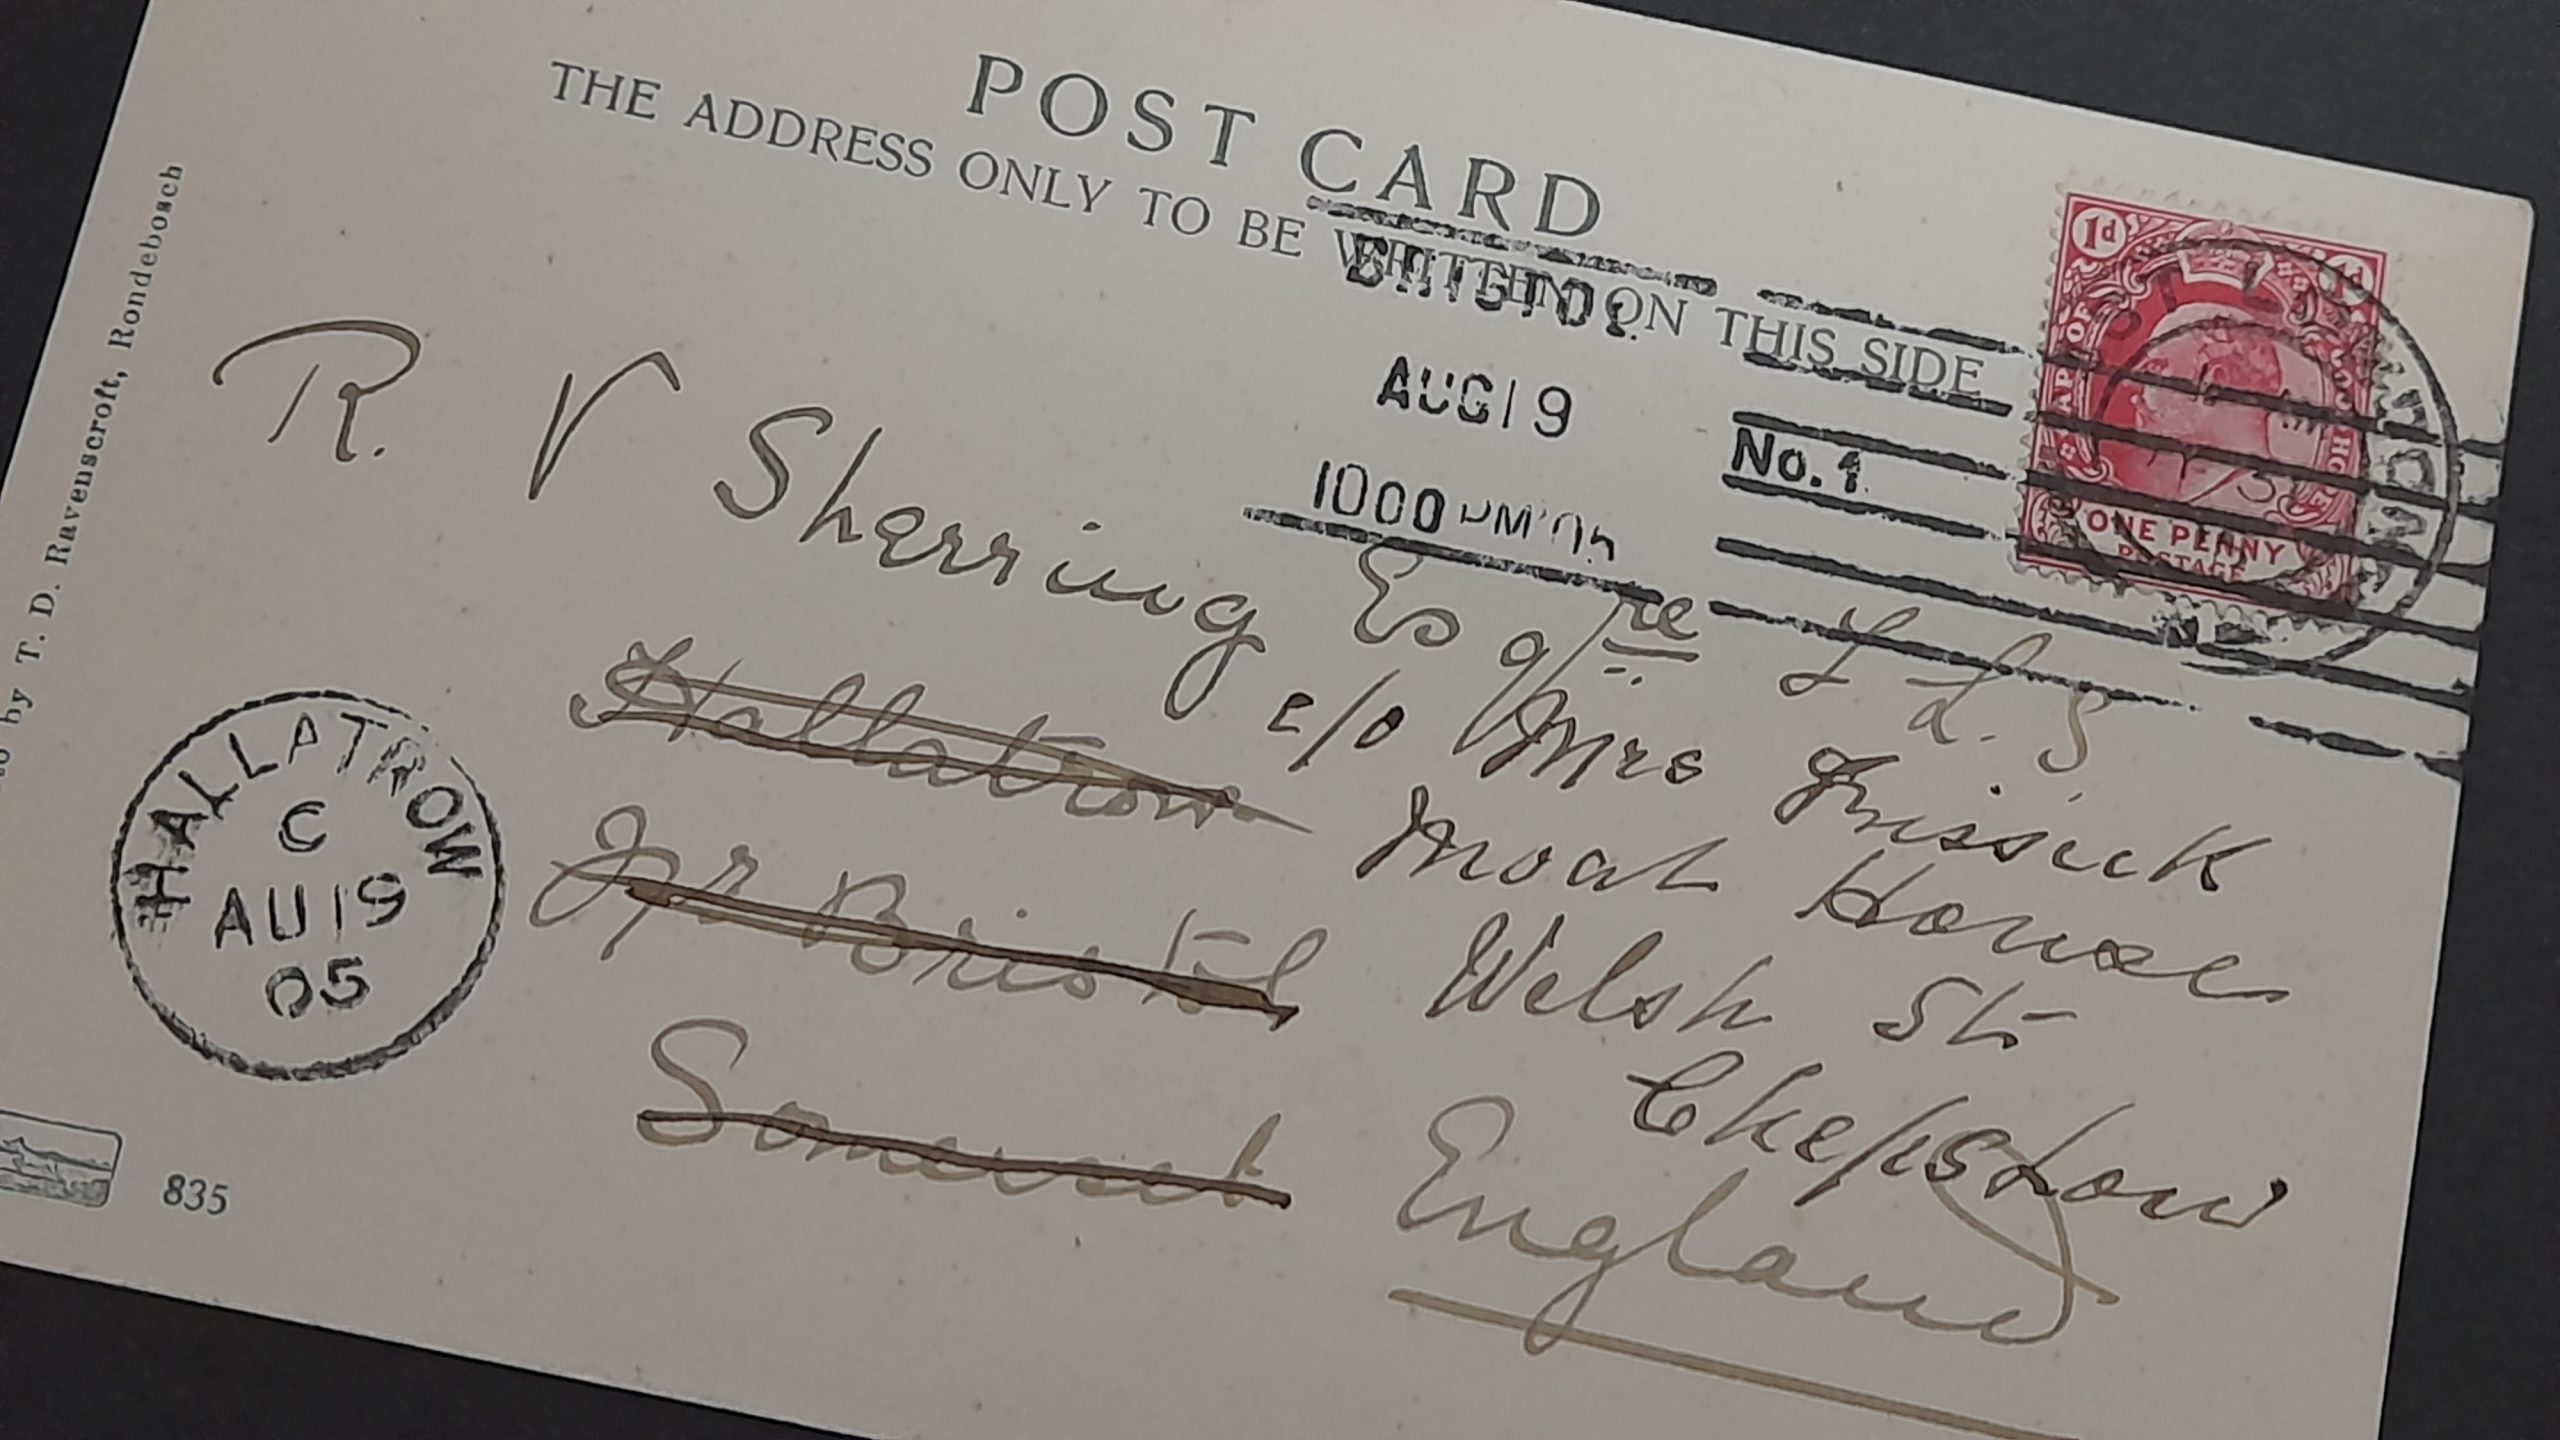 POST CARD
THE ADDRESS ONLY TO BE WRITTEN ON THIS SIDE
by T. D. Ravenscroft, Rondebosch
1d 1d
CAPE OF
ONE PENNY
POSTAGE
BRISTOL
AUG 19
1000 PM '05
No. 1
R. V Sherring Esqre
Hallatrow
Nr Bristol
Somerset
England
c/o Mrs
Moat House
Welsh St
Chepstow
HALLATROW
C
AU 19
05
835